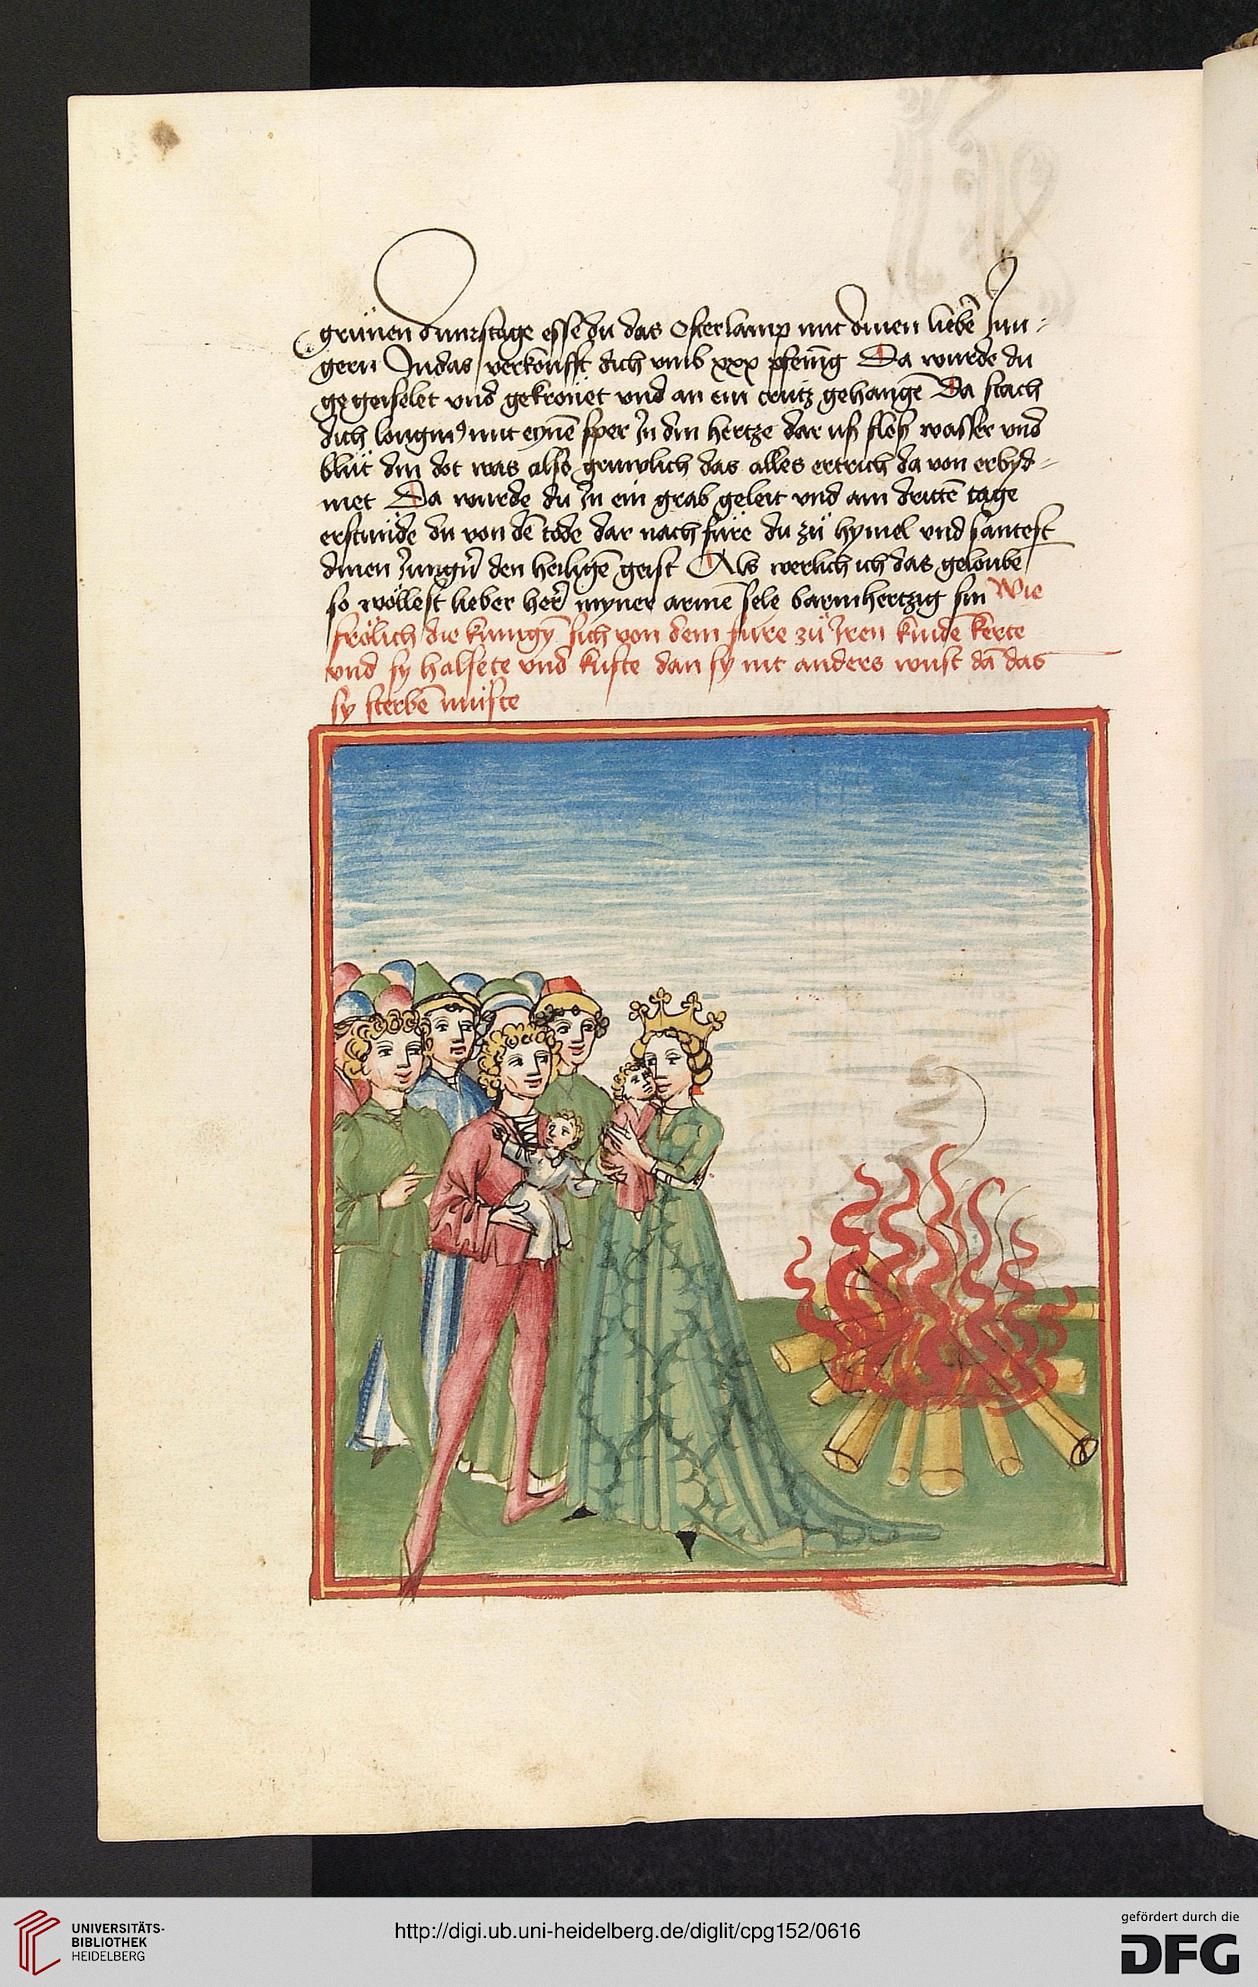 grünen dunrstage esse du das Osterlamp mit dinen liebē Jun-
gern Judas verkoufft dich umb xxx pfenīg Da wurde du
gegeiselet und gekrönet und an ein crütz gehangē Da stach
dich longinꝰ mit eynē sper Jn din hertze dar uß floß wasser und
blüt din dot was also grimlich das alles ertrich da von erbyd-
met Da wurde du Jn ein grab geleit und am drittē tage
erstunde du von dē tode dar nach füre du zü hymel und santest
dinen Jungerñ den heiligē geist Als werlich ich das geloube
so wöllest lieber her̄ myner armē sele barmhertzig sin Wie
frölich die kunigȳ sich von dem füre zü Jren kindē kerte
und sy halsete und küste dan sy nit anders wust dā das
sy sterbē müste
UNIVERSITÄTS-
BIBLIOTHEK
HEIDELBERG
http://digi.ub.uni-heidelberg.de/diglit/cpg152/0616
gefördert durch die
DFG